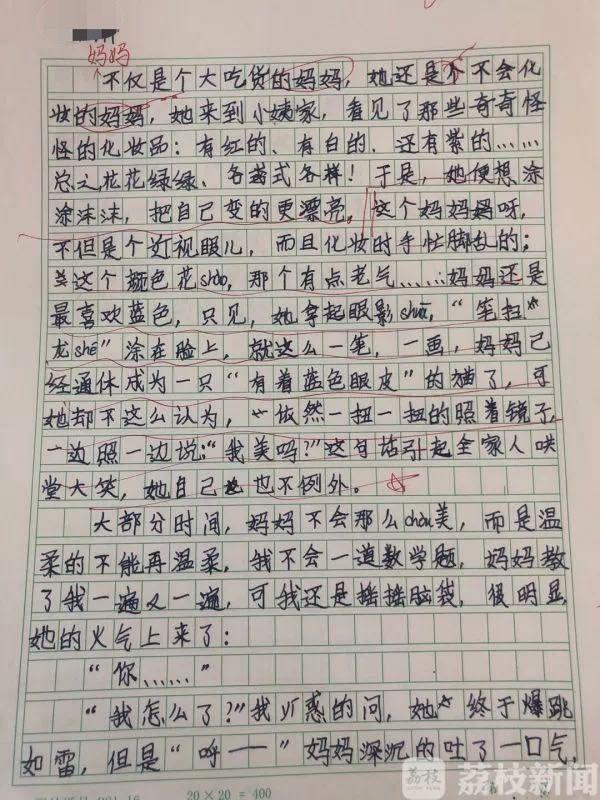 妈妈
不仅是个大吃货的妈妈，她还是个不会化
妆的妈妈，她来到小姨家，看见了那些奇奇怪
怪的化妆品：有红的、有白的、还有紫的……
总之花花绿绿、各式各样！于是，她便想涂
涂沫沫，把自己变的更漂亮。这个妈妈呀，
不但是个近视眼儿，而且化妆时手忙脚乱的；
这个颜色花shào，那个有点老气……妈妈还是
最喜欢蓝色，只见，她拿起眼影shuā，“笔扫
龙shé”涂在脸上，就这么一笔，一画，妈妈已
经通体成为一只“有着蓝色眼皮”的猫了，可
她却不这么认为，依然一扭一扭的照着镜子，
一边照一边说：“我美吗？”这句话引起全家人哄
堂大笑，她自己也不例外。
大部分时间，妈妈不会那么chòu美，而是温
柔的不能再温柔，我不会一道数学题，妈妈教
了我一遍又一遍，可我还是摇摇脑袋，很明显，
她的火气上来了：
“你……”
“我怎么了？”我疑惑的问，她终于爆跳
如雷，但是“呼——”妈妈深沉的吐了一口气，
20×20=400
荔枝
荔枝新闻